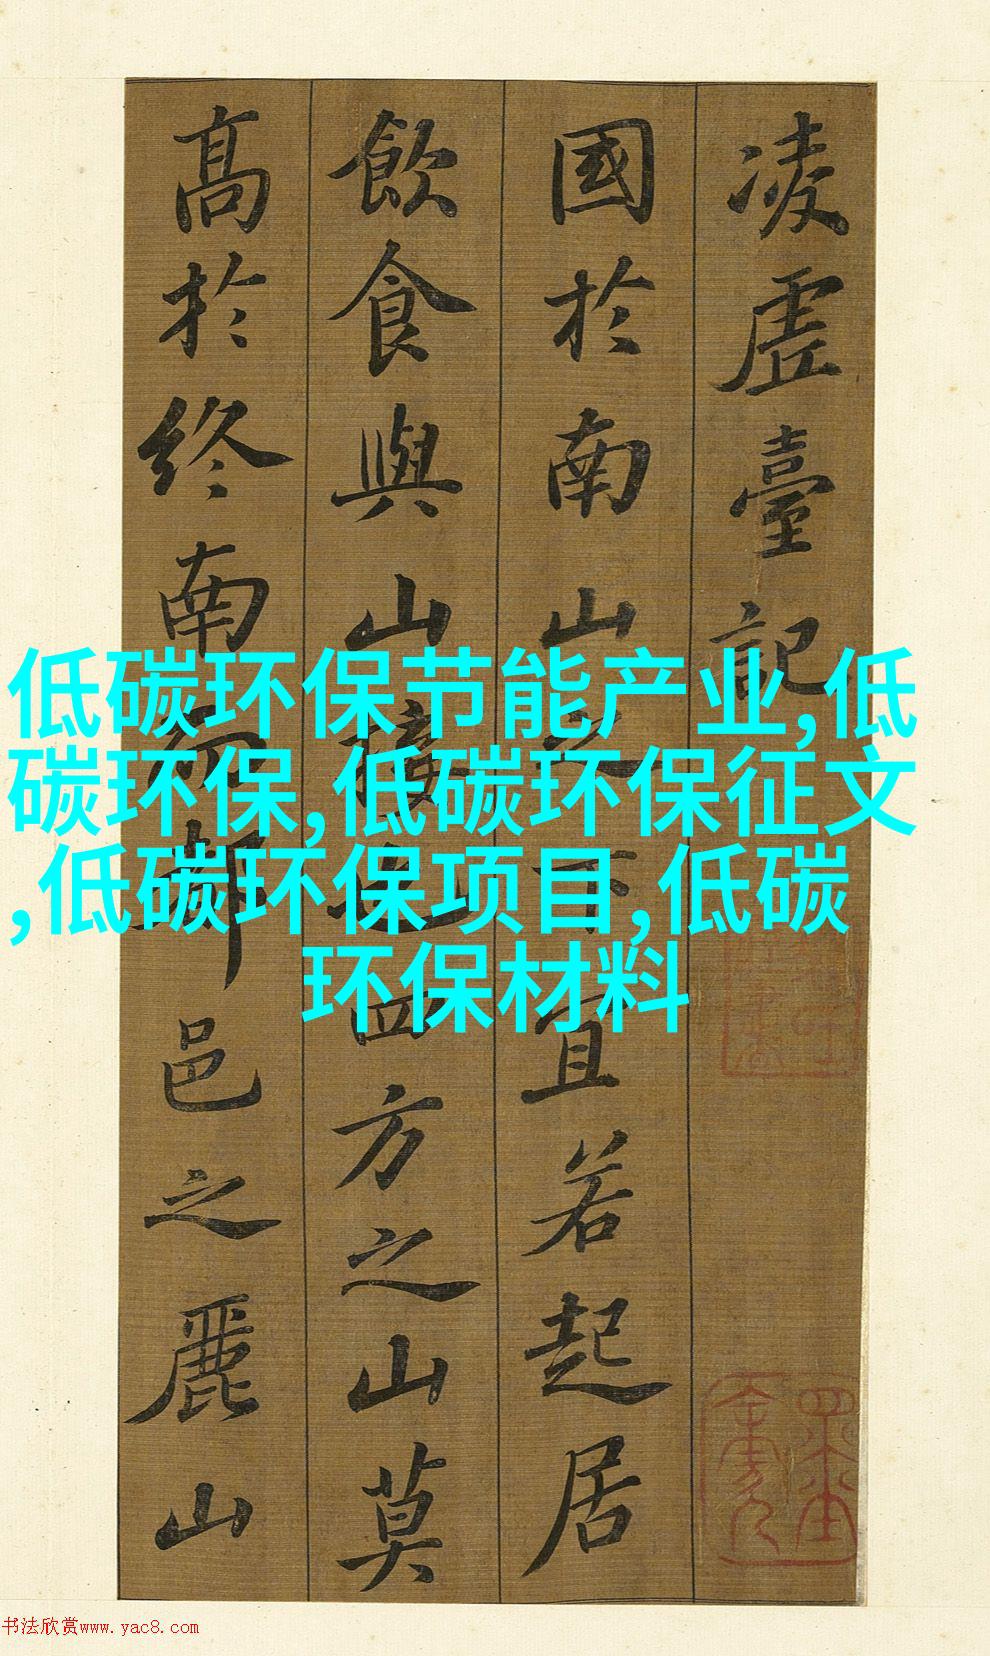 凌虛臺記
國於南山之下宜若起居
飲食與山接也四方之山莫
髙於終南而都邑之麗山
低碳环保节能产业,低
碳环保,低碳环保征文
,低碳环保项目,低碳
环保材料
书法欣赏www.yac8.com